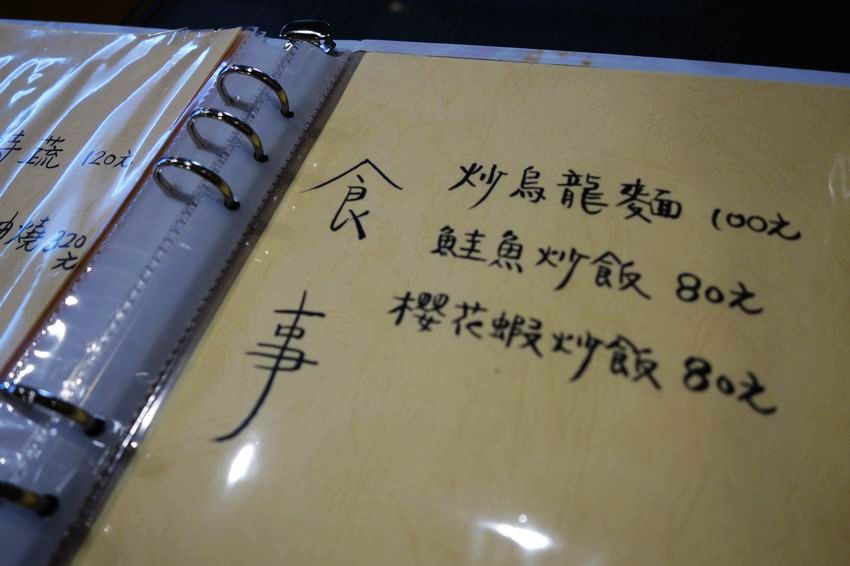 蔬 120元
燒 320
元
食事
炒烏龍麵 100元
鮭魚炒飯 80元
櫻花蝦炒飯 80元